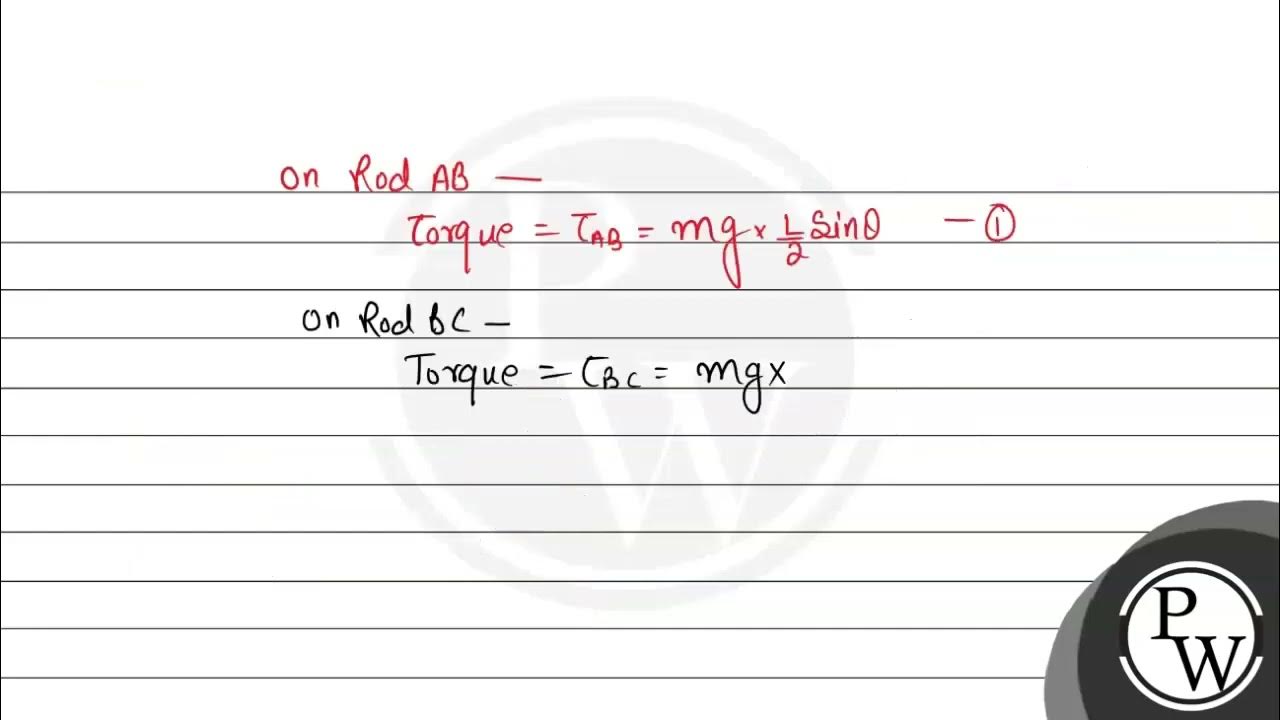 on Rod AB —
Torque = τAB = mg × L/2 Sinθ — ①
on Rod BC —
Torque = τBC = mg×
PW
PW